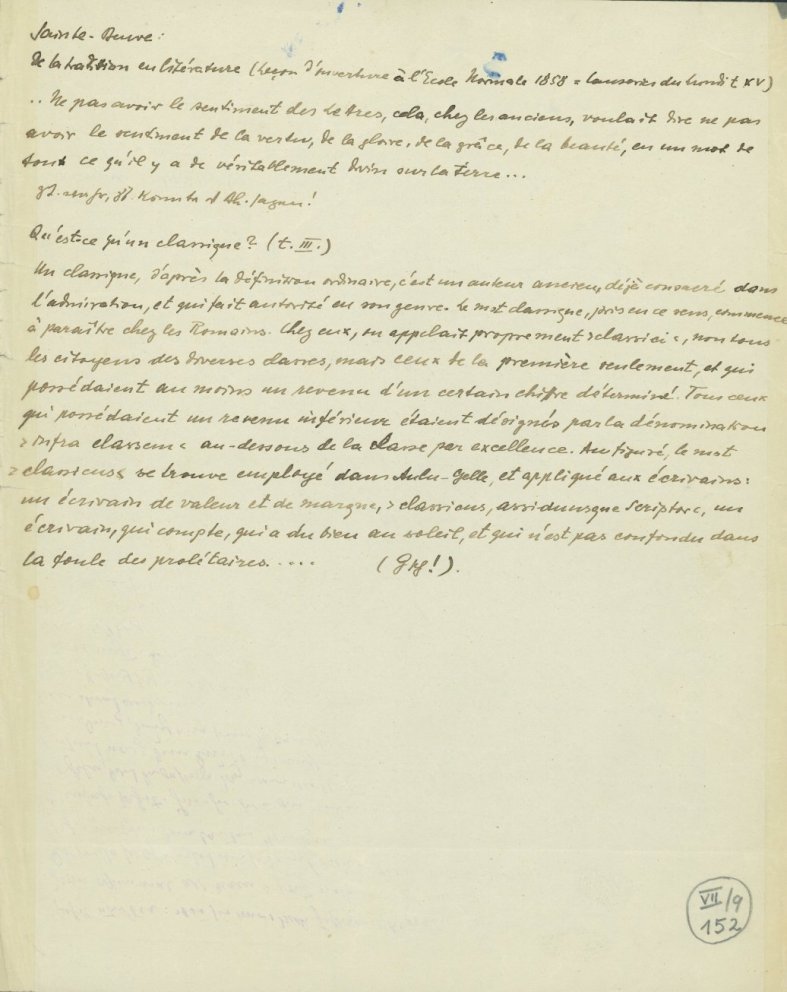 Sainte-Beuve:
De la tradition en littérature (Leçon d'ouverture à l'Ecole Normale 1858 = Causeries du lundi t XV)
.. Ne pas avoir le sentiment des Lettres, cela, chez les anciens, voulait dire ne pas
avoir le sentiment de la vertu, de la gloire, de la grâce, de la beauté, en un mot de
tout ce qu'il y a de véritablement divin sur la terre...
Qu'est-ce qu'un classique? (t. III.)
Un classique, d'après la définition ordinaire, c'est un auteur ancien, déjà consacré dans
l'admiration, et qui fait autorité en son genre. Le mot classique, pris en ce sens, commence
à paraître chez les Romains. Chez eux, on appelait proprement >classici<, non tous
les citoyens des diverses classes, mais ceux de la première seulement, et qui
possédaient au moins un revenu d'un certain chiffre déterminé. Tous ceux
qui possédaient un revenu inférieur étaient désignés par la dénomination
>infra classem< au-dessous de la classe par excellence. Au figuré, le mot
>classicus< se trouve employé dans Aulu-Gelle, et appliqué aux écrivains:
un écrivain de valeur et de marque, >classicus, assiduusque Scriptor<, un
écrivain, qui compte, qui a du bien au soleil, et qui n'est pas confondu dans
la foule des prolétaires.....
VII/9
152